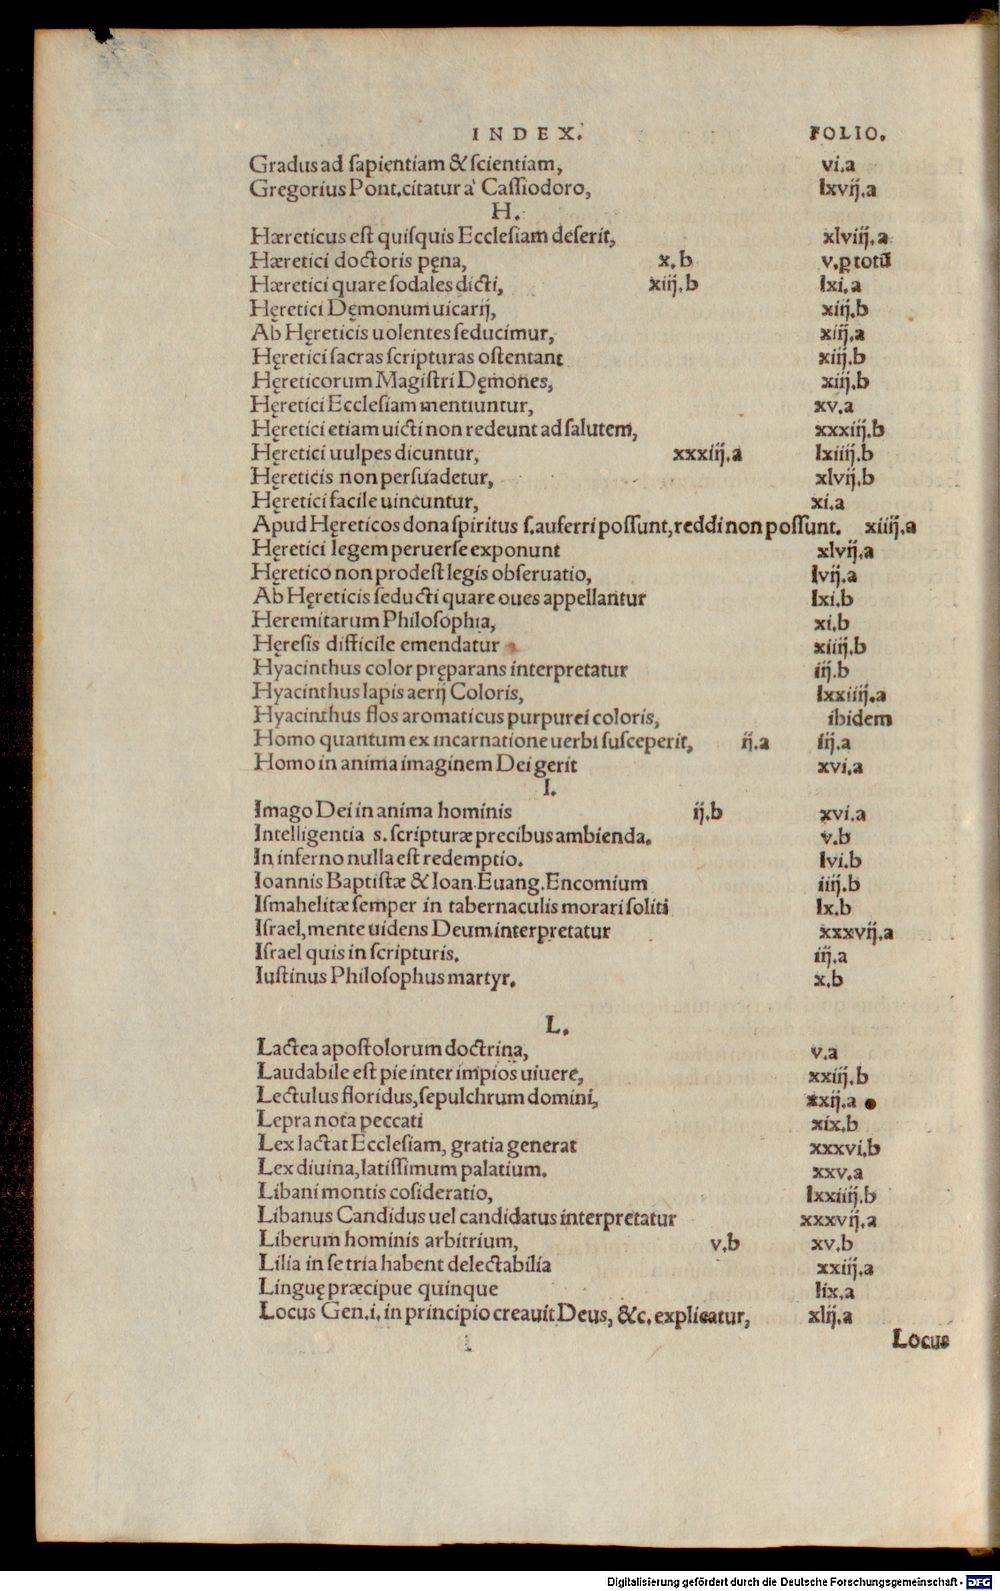 INDEX. FOLIO.
Gradus ad ſapientiam & ſcientiam, vi.a
Gregorius Pont.citatur a' Caſſiodoro, lxvij.a
H.
Hæreticus eſt quiſquis Eccleſiam deſerit, xlviij.a
Hæretici doctoris pęna, x.b v.ꝑ totū
Hæretici quare ſodales dicti, xiij.b lxi.a
Hęretici Dęmonum uicarij, xiij.b
Ab Hęreticis uolentes ſeducimur, xiij.a
Hęretici ſacras ſcripturas oſtentant xiij.b
Hęreticorum Magiſtri Dęmones, xiij.b
Hęretici Eccleſiam mentiuntur, xv.a
Hęretici etiam uicti non redeunt ad ſalutem, xxxiij.b
Hęretici uulpes dicuntur, xxxiij.a lxiiij.b
Hęreticis non perſuadetur, xlvij.b
Hęretici facile uincuntur, xi.a
Apud Hęreticos dona ſpiritus ſ.auferri poſſunt,reddi non poſſunt. xiiij.a
Hęretici legem peruerſe exponunt xlvij.a
Hęretico non prodeſt legis obſeruatio, lvij.a
Ab Hęreticis ſeducti quare oues appellantur lxi.b
Heremitarum Philoſophia, xi.b
Hęreſis difficile emendatur xiiij.b
Hyacinthus color pręparans interpretatur iij.b
Hyacinthus lapis aerij Coloris, lxxiiij.a
Hyacinthus flos aromaticus purpurei coloris, ibidem
Homo quantum ex incarnatione uerbi ſuſceperit, ij.a iij.a
Homo in anima imaginem Dei gerit xvi.a
I.
Imago Dei in anima hominis ij.b xvi.a
Intelligentia s.ſcripturæ precibus ambienda. v.b
In inferno nulla eſt redemptio. lvi.b
Ioannis Baptiſtæ & Ioan.Euang.Encomium iiij.b
Iſmahelitæ ſemper in tabernaculis morari ſoliti lx.b
Iſrael,mente uidens Deum interpretatur xxxvij.a
Iſrael quis in ſcripturis. iij.a
Iuſtinus Philoſophus martyr. x.b
L.
Lactea apoſtolorum doctrina, v.a
Laudabile eſt pie inter impios uiuere, xxiij.b
Lectulus floridus,ſepulchrum domini, xxij.a
Lepra nota peccati xix.b
Lex lactat Eccleſiam, gratia generat xxxvi.b
Lex diuina,latiſſimum palatium. xxv.a
Libani montis coſideratio, lxxiiij.b
Libanus Candidus uel candidatus interpretatur xxxvij.a
Liberum hominis arbitrium, v.b xv.b
Lilia in ſe tria habent delectabilia xxiij.a
Linguę præcipue quinque lix.a
Locus Gen.i. in principio creauit Deus, &c. explicatur, xlij.a
Locus
Digitalisierung gefördert durch die Deutsche Forschungsgemeinschaft - DFG